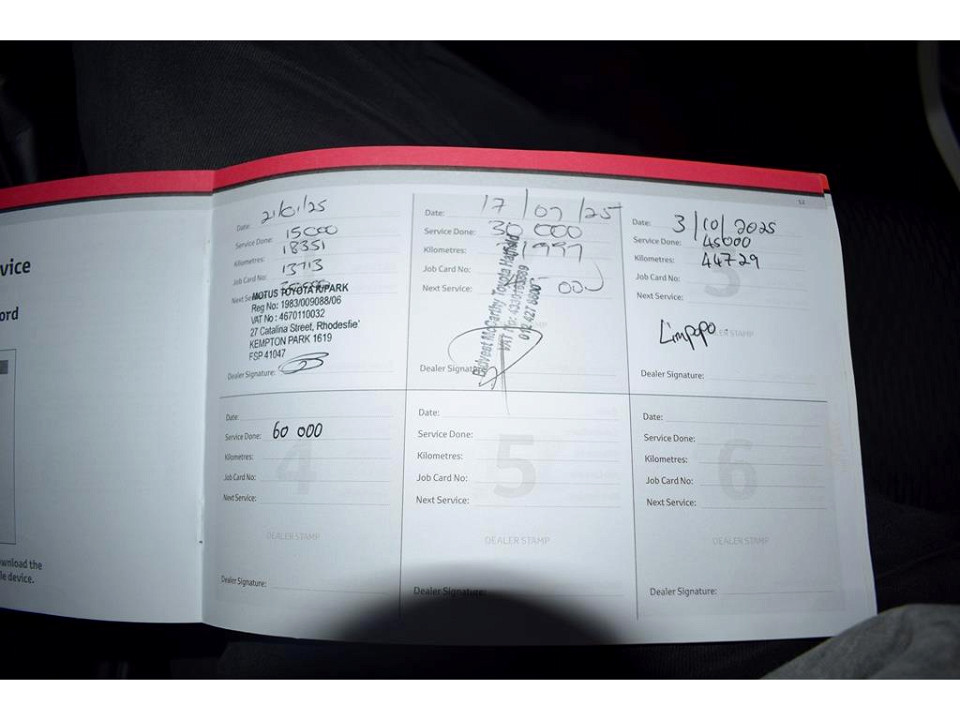 vice
ord
wnload the
le device.
52
Date: 21/01/25
Service Done: 15000
Kilometres: 18351
Job Card No: 13713
Next Se
MOTUS TOYOTA K/PARK
Reg No: 1983/009088/06
VAT No: 4670110032
27 Catalina Street, Rhodesfie
KEMPTON PARK 1619
FSP 41047
Dealer Signature:
Date: 17/07/25
Service Done: 30 000
Kilometres:
Job Card No:
Next Service:
Bidvest McCarthy Toyota
Dealer Signature:
Date: 3/10/2025
Service Done: 45000
Kilometres: 44729
Job Card No:
Next Service:
Limpopo
Dealer Signature:
Date:
Service Done: 60 000
Kilometres:
Job Card No:
Next Service:
4
DEALER STAMP
Dealer Signature:
Date:
Service Done:
Kilometres:
Job Card No:
Next Service:
5
DEALER STAMP
Dealer Signature:
Date:
Service Done:
Kilometres:
Job Card No:
Next Service:
6
DEALER STAMP
Dealer Signature: